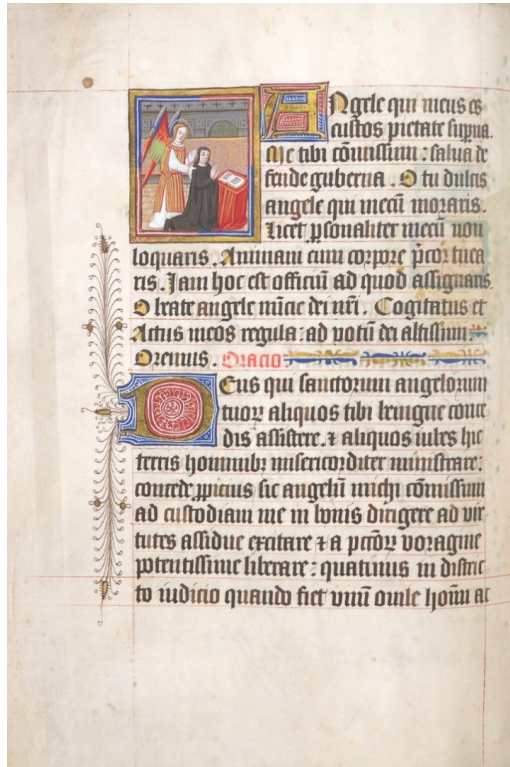 Angele qui meus es
custos pietate suprna.
Me tibi cōmissum : salua de
fende guberna. O tu dulcis
angele qui mecū moraris.
Licet psonaliter mecū non
loquaris. Animam cum corpore p̄cor tuea
ris. Jam hoc est officiū ad quod assignaris.
O beate angele nūcie dei nr̄i. Cogitatus et
Actus meos regula : ad votū dei altissimi.
Oremus. Oracio
Deus qui sanctorum angelorum
tuoꝝ aliquos tibi benigne conce
dis assistere. ⁊ aliquos iubes hic
terris hominibꝫ misericorditer ministrare :
concede ꝓpicius sic angelū michi cōmissum
ad custodiam me in bonis dirigere ad vir
tutes assidue excitare ⁊ a pcc̄oꝝ voragine
potentissime liberare : quatinus in distric
to iudicio quando fiet vnū ouile homī ac